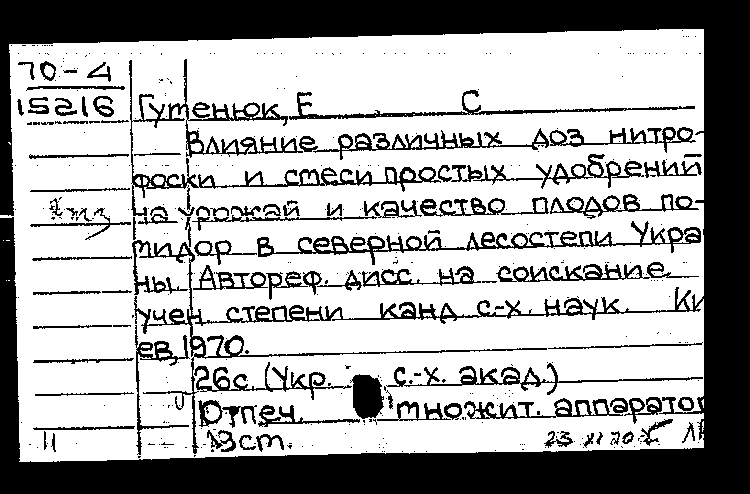 70-4
15216 Гутенюк, Е С
Влияние различных доз нитро-
фоски и смеси простых удобрений
на урожай и качество плодов по-
мидор в северной лесостепи Укра
ны. Автореф. дисс. на соискание
учен. степени канд с-х. наук. Ки
ев, 1970.
26с. (Укр. с.-х. акад.)
Отпеч. множит. аппаратом
13 ст.
11 23 XI 70